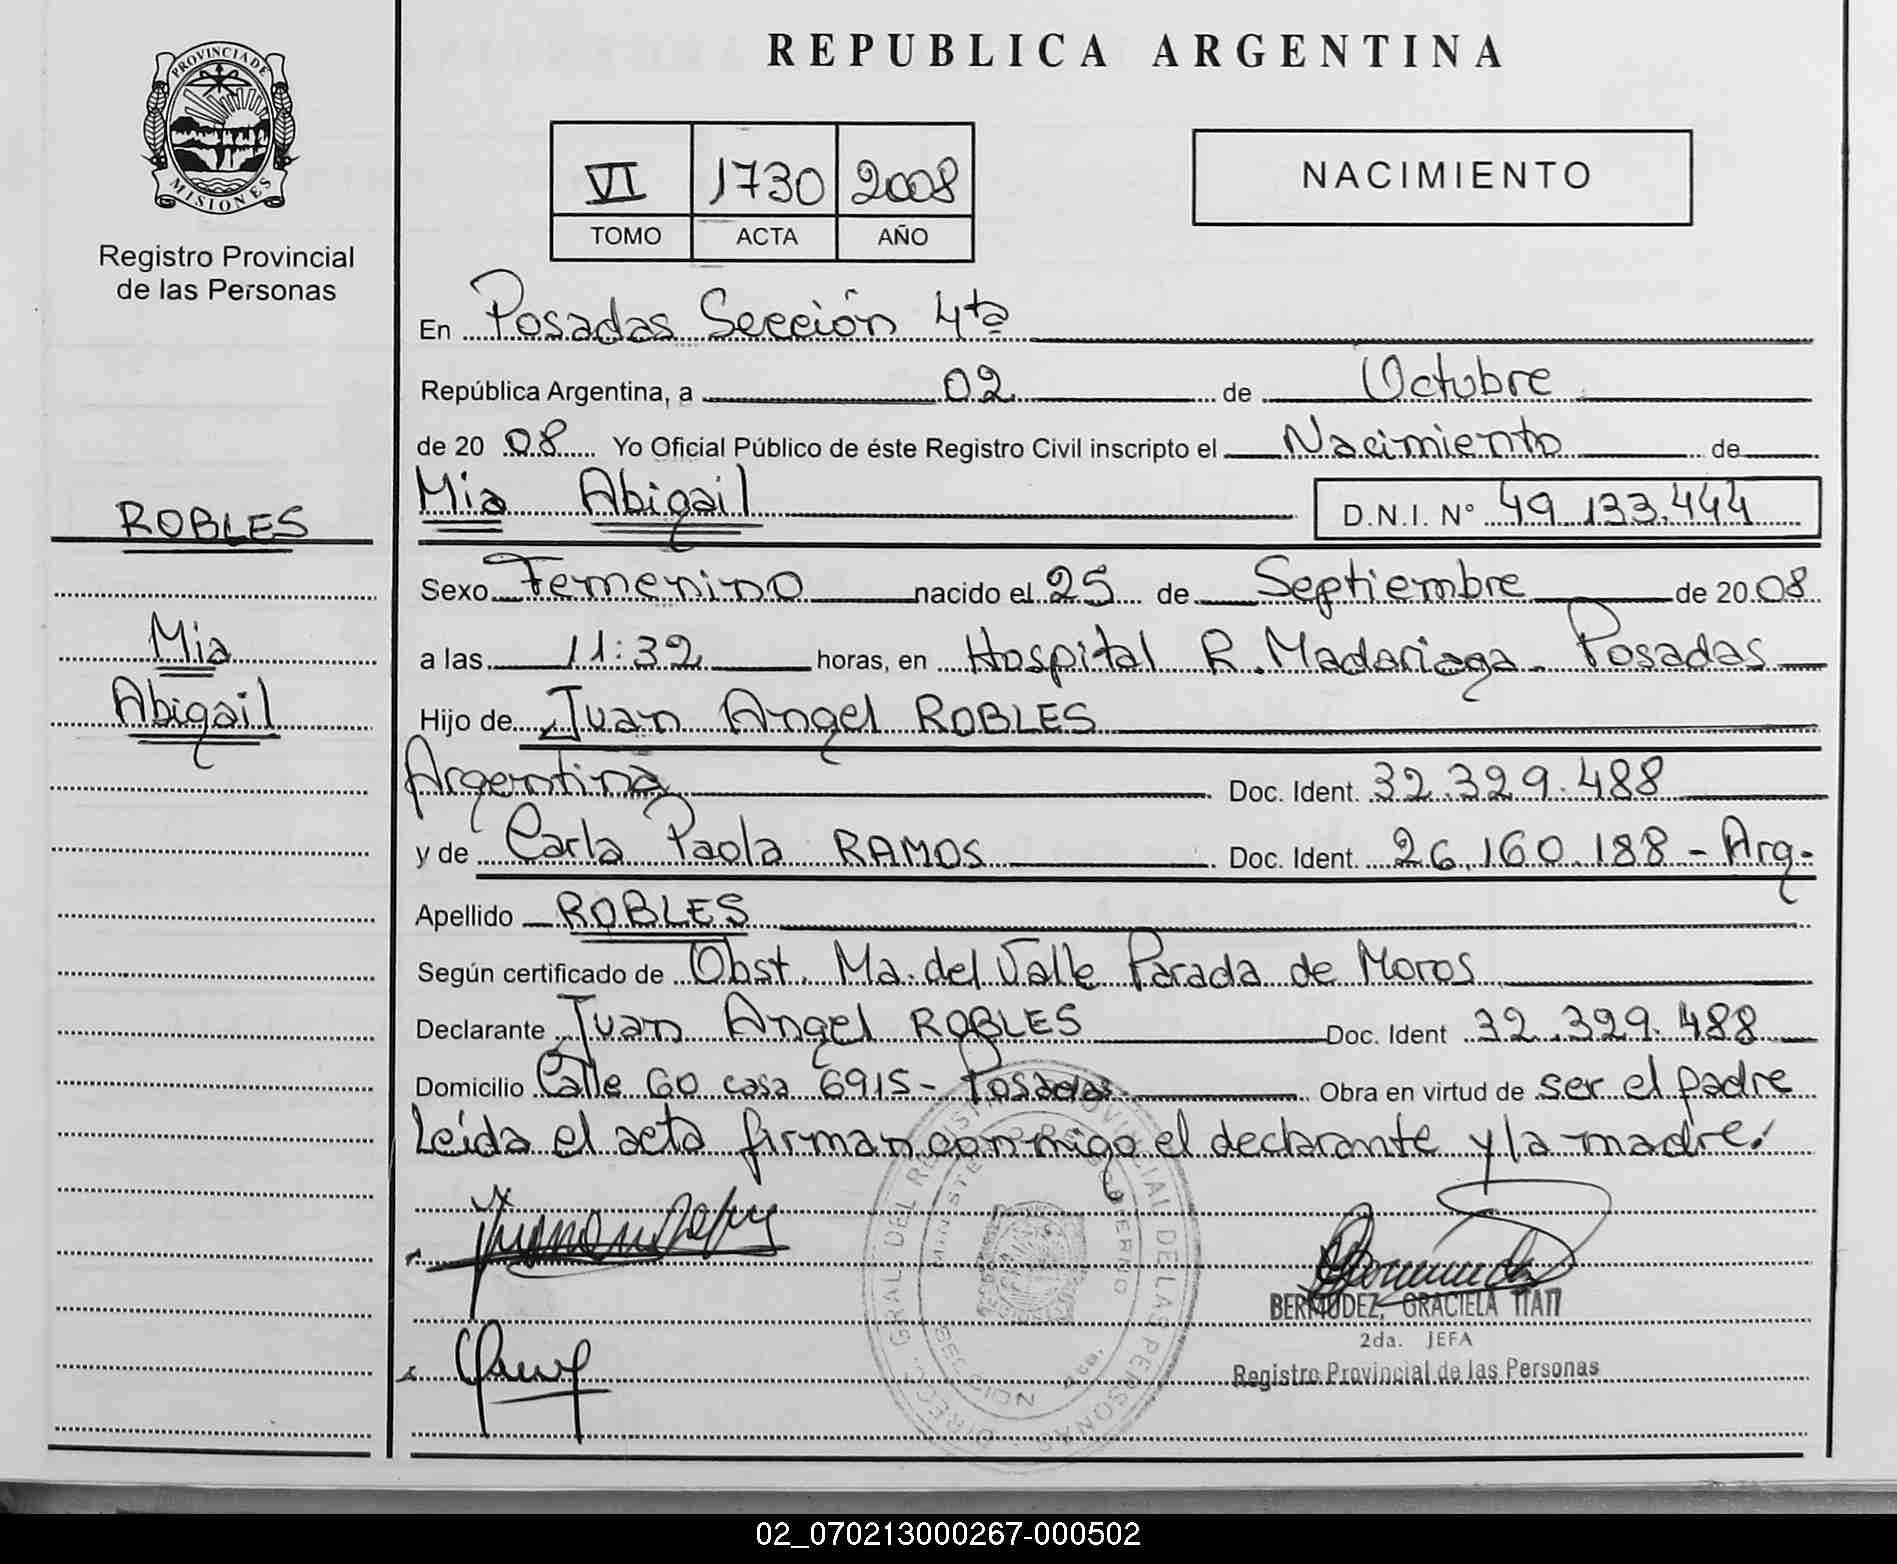 PROVINCIA DE
MISIONES
Registro Provincial
de las Personas
ROBLES
Mia
Abigail
REPUBLICA ARGENTINA
VI 1730 2008
TOMO ACTA AÑO
NACIMIENTO
En Posadas Sección 4ta
República Argentina, a 02 de Octubre
de 20 08 Yo Oficial Público de éste Registro Civil inscripto el Nacimiento de
Mia Abigail D.N.I. N° 49.133.444
Sexo Femenino nacido el 25 de Septiembre de 20 08
a las 11:32 horas, en Hospital R. Madariaga - Posadas
Hijo de Juan Angel ROBLES
Argentina Doc. Ident. 32.329.488
y de Carla Paola RAMOS Doc. Ident. 26.160.188 - Arg.
Apellido ROBLES
Según certificado de Obst. Ma. del Valle Parada de Moros
Declarante Juan Angel ROBLES Doc. Ident 32.329.488
Domicilio Calle 60 casa 6915 - Posadas Obra en virtud de ser el padre
Leída el acta firman conmigo el declarante y la madre.
DIREC. GRAL. DEL REGISTRO PROVINCIAL DE LAS PERSONAS
MINISTERIO DE GOBIERNO
SECCION 4ta.
BERMUDEZ, GRACIELA ITATI
2da. JEFA
Registro Provincial de las Personas
02_070213000267-000502